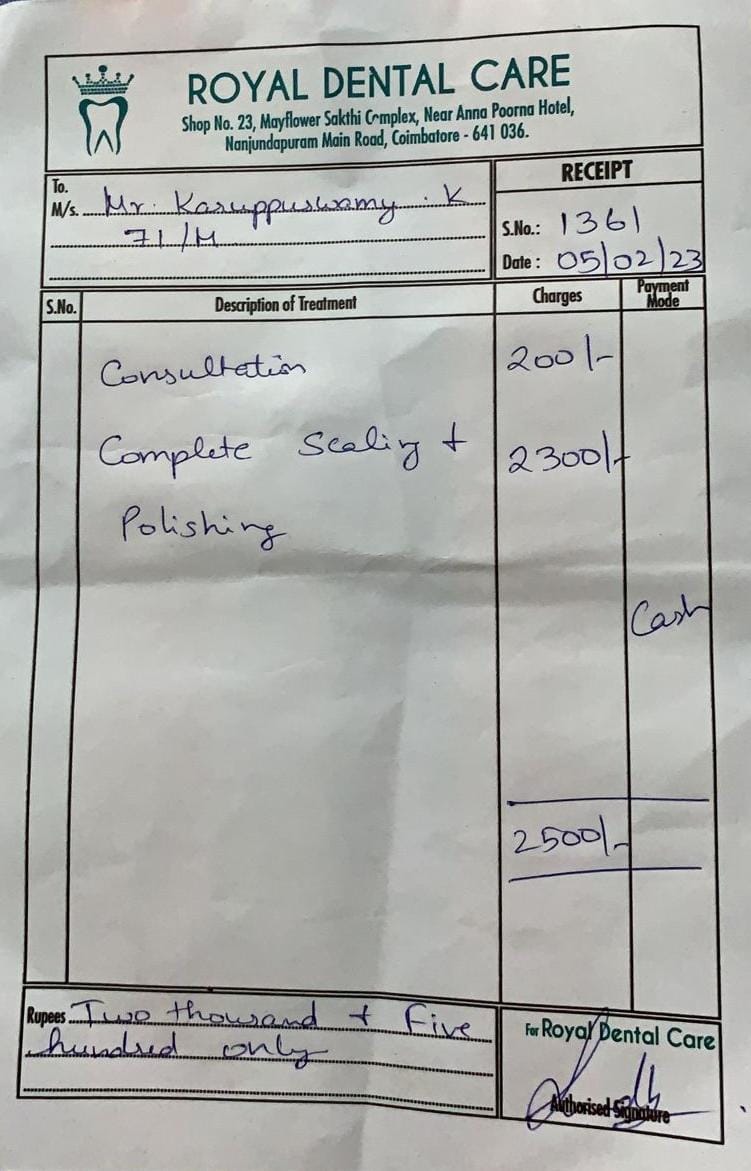 ROYAL DENTAL CARE
Shop No. 23, Mayflower Sakthi Complex, Near Anna Poorna Hotel,
Nanjundapuram Main Road, Coimbatore - 641 036.
To.
M/s. Mr. Karuppuswamy . K
71/M
RECEIPT
S.No.: 1361
Date : 05/02/23
S.No. Description of Treatment Charges Payment Mode
Consultation 200/-
Complete Scaling + 2300/-
Polishing
Cash
2500/-
Rupees Two thousand + Five
hundred only
For Royal Dental Care
Authorised Signature